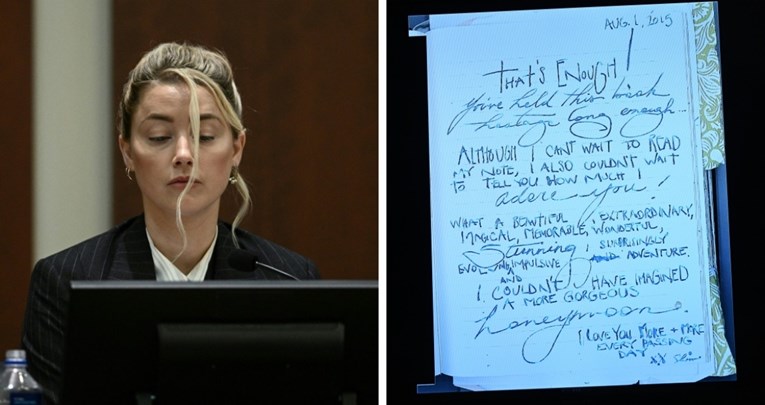 AUG. 1, 2015
THAT'S ENOUGH!
You've held this book
hostage long enough...
ALTHOUGH I CANT WAIT TO READ
MY NOTE, I ALSO COULDN'T WAIT
TO TELL YOU HOW MUCH I
adore you!
WHAT A BEAUTIFUL, EXTRAORDINARY,
MAGICAL, MEMORABLE, WONDERFUL,
Stunning, SURPRISINGLY
IMPULSIVE AND ADVENTURE.
AND
I COULDN'T HAVE IMAGINED
A MORE GORGEOUS
honeymoon.
I LOVE YOU MORE + MORE
EVERY PASSING
DAY xx Slim.